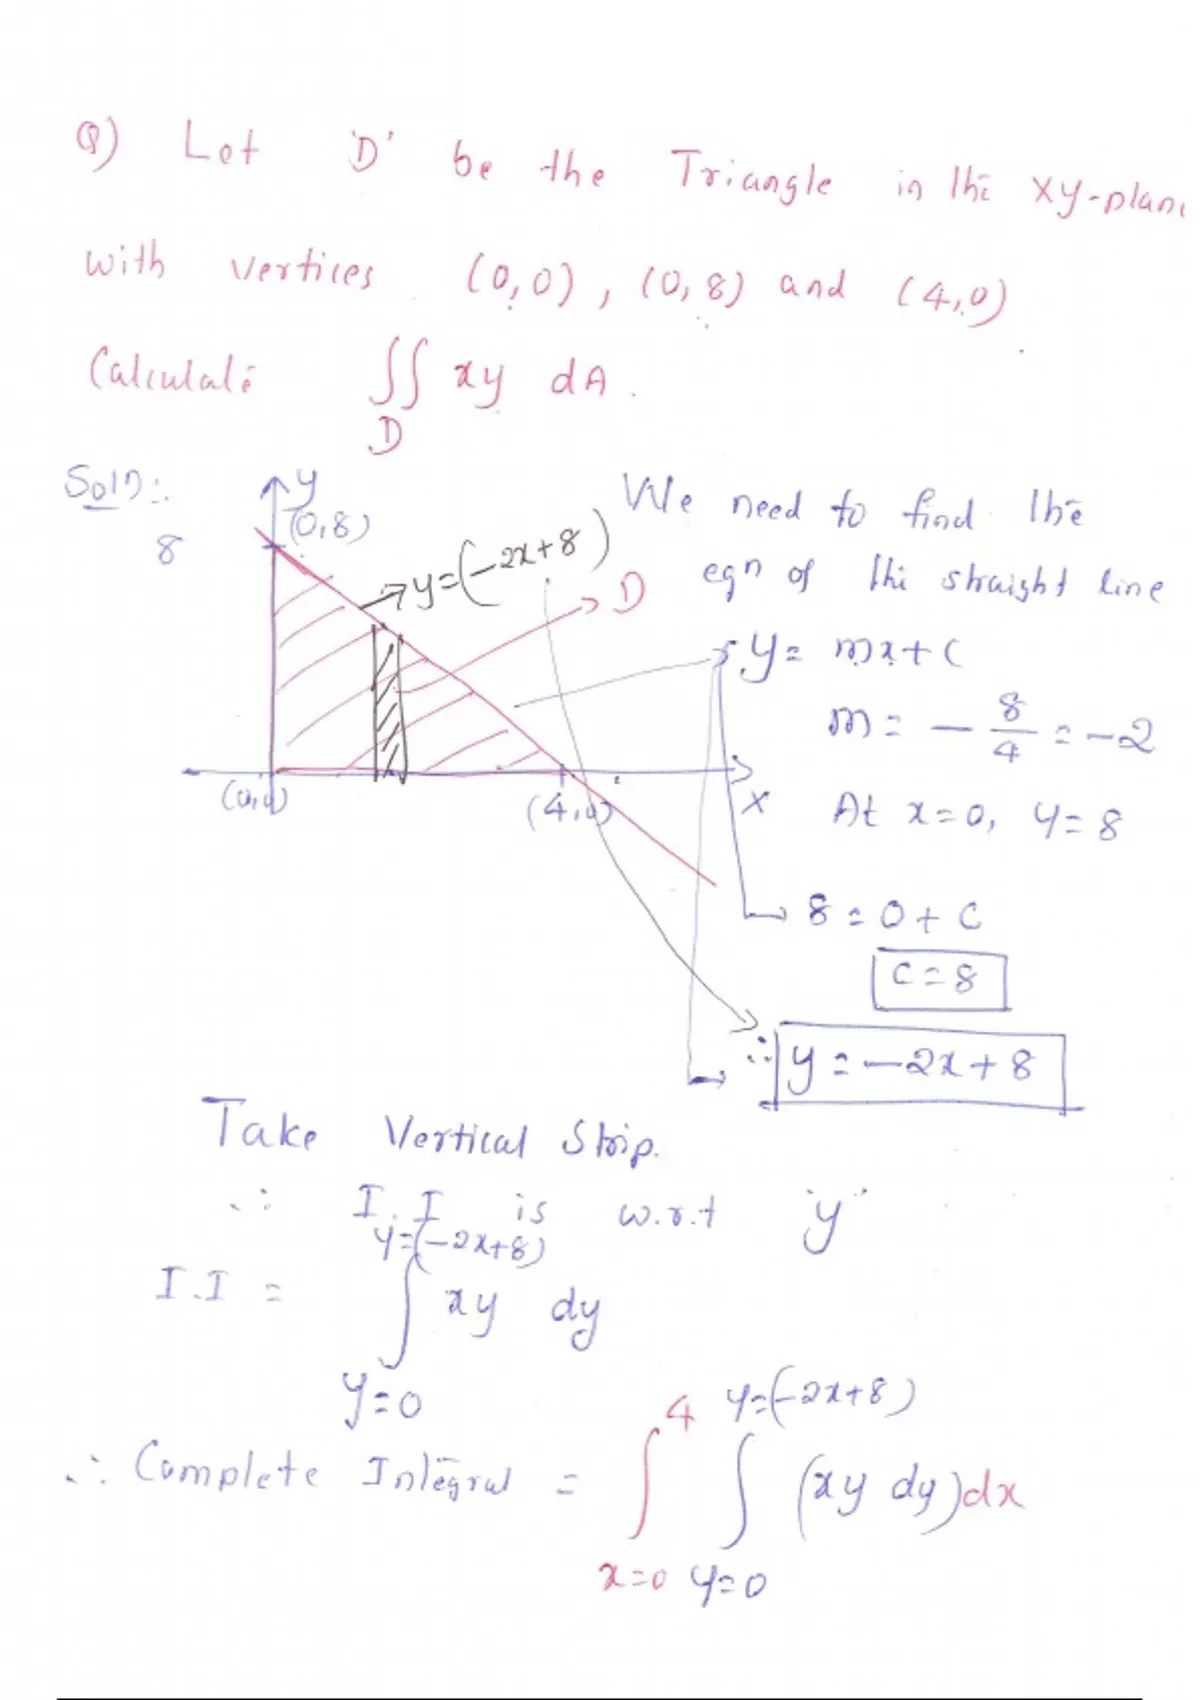 Q) Let 'D' be the Triangle in the XY-plane
with vertices (0,0), (0,8) and (4,0)
Calculate ∬ xy dA.
D
Soln:
y
(0,8)
8
y=(-2x+8)
D
(0,0)
(4,0)
X
We need to find the
eqn of the straight line
y = mx+c
m = -8/4 = -2
At x=0, y=8
8 = 0 + C
C = 8
∴ y = -2x+8
Take Vertical Strip.
∴ I.I is w.r.t 'y'
y=(-2x+8)
I.I = ∫ xy dy
y=0
4 y=(-2x+8)
∴ Complete Integral = ∫ ∫ (xy dy)dx
x=0 y=0